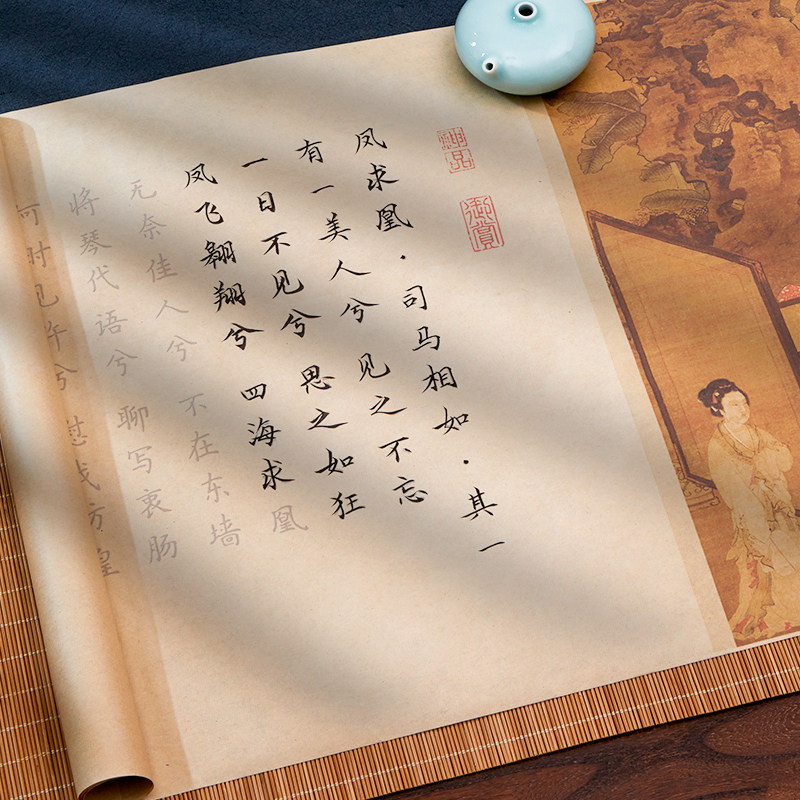 神品
御赏
凤求凰·司马相如·其一
有一美人兮 见之不忘
一日不见兮 思之如狂
凤飞翱翔兮 四海求凰
无奈佳人兮 不在东墙
将琴代语兮 聊写衷肠
何时见许兮 慰我彷徨